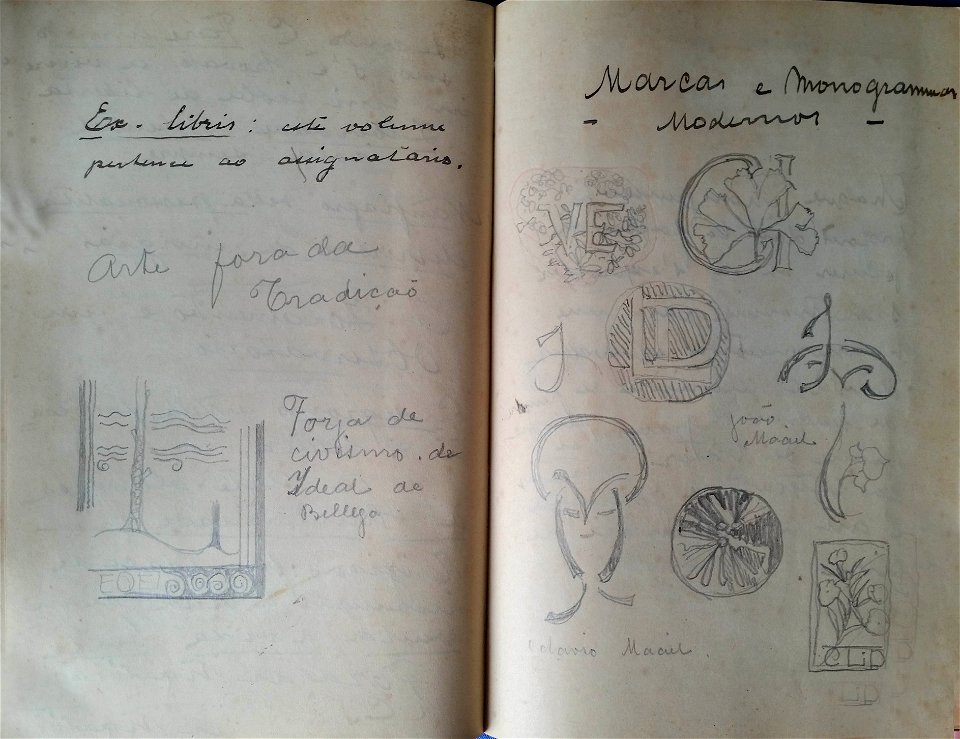 Ex-libris: este volume
pertence ao assignatário.
Arte fora da
Tradição
Forja de
civismo. de
Ideal de
Belleza
Marcas e Monogrammas
- Modernos -
VE
J
D
João
Maciel
Octavio Maciel.
CLID
LID